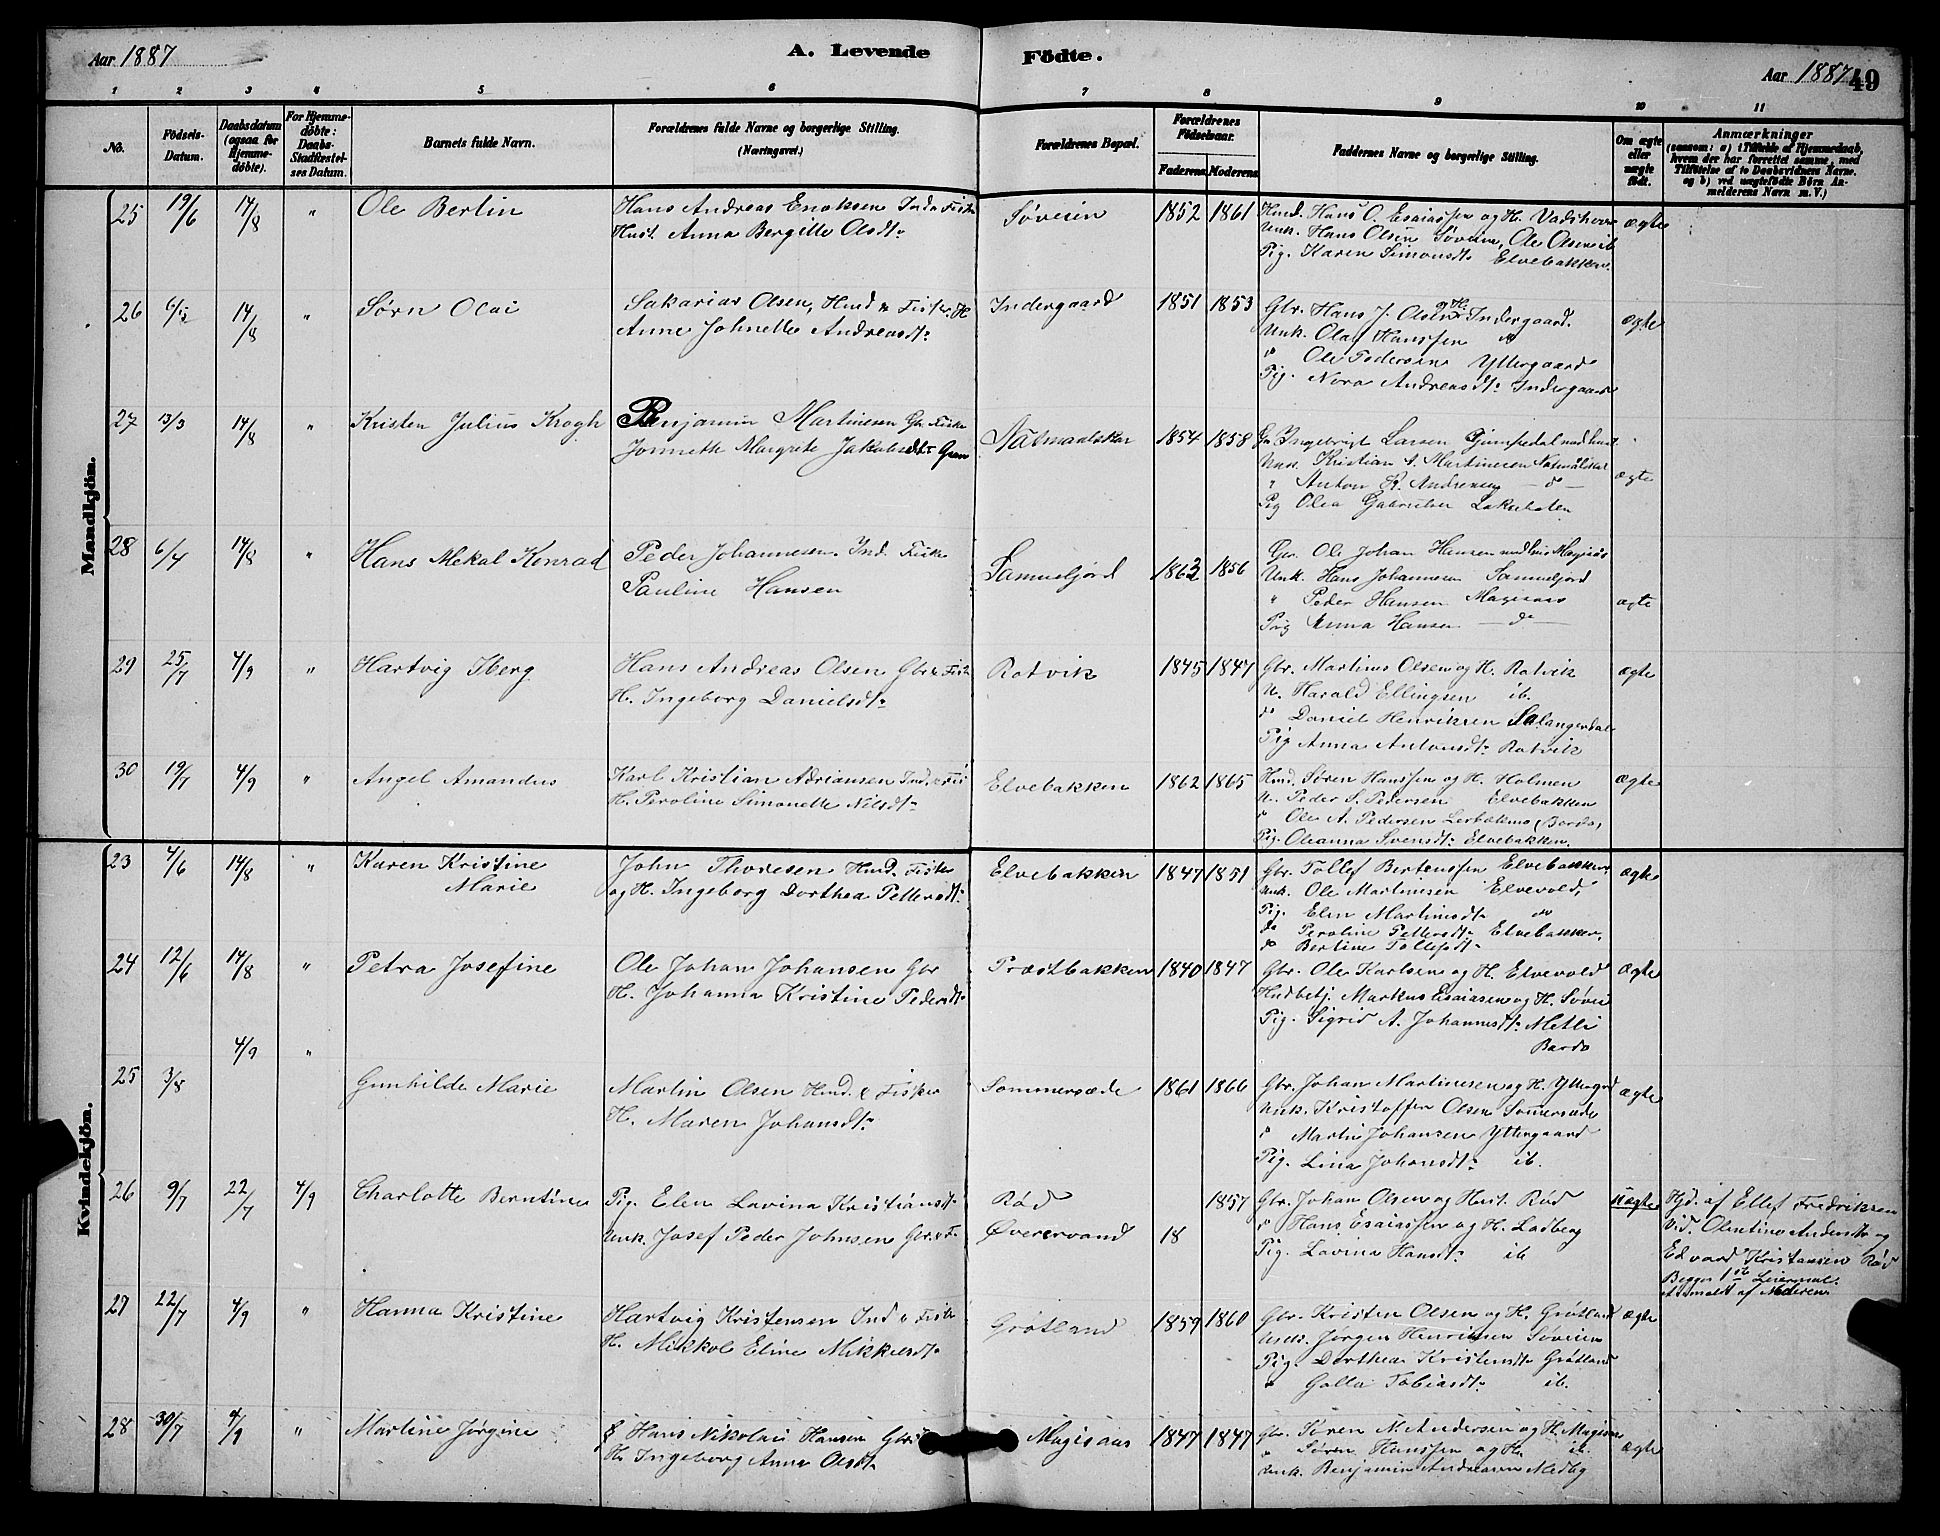 Aar 1887
A. Levende
Födte.
Aar 1887
49
1 2 3 4 5 6 7 8 9 10 11
No.
Födsels-Datum.
Daabsdatum (ogsaa for Hjemme-döbte).
For Hjemme-döbte: Daabs-Stadfæstel-ses Datum.
Barnets fulde Navn.
Forældrenes fulde Navne og borgerlige Stilling.
(Næringsvei.)
Forældrenes Bopæl.
Forældrenes Födselsaar.
Faderens Moderens
Faddernes Navne og borgerlige Stilling.
Om ægte eller uægte födt.
Anmærkninger
(saasom: a) i Tilfælde af Hjemmedaab, hvem der har forrettet samme, med Tilföielse af to Daabsvidners Navne, og b) ved uægtefödte Börn An-melderens Navn m. V.)
Mandkjön.
25 19/6 14/8 " Ole Bertin
Hans Andreas Enoksen Ind. Fisk
Hust. Anna Bergitte Olsdt.
Søveien 1852 1861
Hmd. Hans O. Esaiassen og H.
Unk. Hans Olsen Søveien, Ole Olsen ib
Pig. Karen Simonsdt. Elvebakken.
ægte
26 14/8 " Sørn Olai
Sakarias Olsen, Hmd & Fisker. H
Anne Johnette Andreasdt.
Indergaard 1851 1853
Gbr. Hans J. Olsen og H. Indergaard.
Unk. Olaf Hanssen do
do Ole Pedersen Yttergaard
Pig. Nora Andreasdt. Indergaard
ægte
27 13/3 14/8 " Kristen Julius Krogh
Benjamin Martinsen Gbr Fisker
Jonneth Margrete Jakobsdt.
1854 1858
Ingebrigt Larsen
Unk. Kristian Martinesen
" Anton R. Andresen — d —
Pig Olea
ægte
28 6/4 14/8 " Hans Mekal Konrad
Peder Johannesen Ind. Fisker
Pauline Hansen
Samuelfjord 1862 1856
Gbr. Ole Johan Hansen
Unk. Hans Johannesen Samuelfjord
" Peder Hansen Magisaas
Pig Anna Hansen — do —
ægte
29 25/7 4/9 " Hartvig Iberg
Hans Andreas Olsen Gbr & Fisk
H. Ingeborg Danielsdt.
Rotvik 1845 1847
Gbr. Martinus Olsen og H. Rotvik
U. Harald Ellingsen ib.
do Daniel Henriksen Salangsdal
Pig Anna Antonsdt. Rotvik
ægte
30 19/7 4/9 " Angel Amandus
Karl Kristian Adriansen Ind. & Fis
H. Peroline Simonette Nilsdt.
Elvebakken 1862 1865
Hmd. Søren Hanssen og H. Holmen
U. Peder S. Pedersen Elvebakken
" Ole A. Pedersen (Bardo)
Pig. Oleanna Svensdt. Elvebakken.
ægte
Kvindekjön.
23 4/6 14/8 " Karen Kristine
Marie
John Thoresen Hmd. Fisker
og H. Ingeborg Dorthea Pettersdt.
Elvebakken 1847 1851
Gbr. Tollef Bertenssen Elvebakken
Unk. Ole Martinesen Elvevold,
Pig. Elen Martinsdt. do
do Peroline Pettersdt. Elvebakken,
do Bertine Tollefsdt.
ægte
24 12/6 14/8 " Petra Josefine
Ole Johan Johansen Gbr
H. Johanna Kristine Pedersdt.
Præstbakken 1840 1847
Gbr. Ole Karlsen og H. Elvevold
Markus Esaiasen og H. Søvei
Pig. Sigrid A. Johannesdt. Metli
Bardo
ægte
4/9 "
25 3/8 Gunhilde Marie
Martin Olsen Hmd. & Fisker
H. Maren Johansdt.
Sommersæde 1861 1866
Gbr. Johan Martinesen og H. Yttergrd
Unk. Kristoffer Olsen Sommersæde
" Martin Johansen Yttergaard
Pig. Lina Johansdt. ib.
ægte
26 9/7 22/7 4/9 Charlotte Berntine
Pig. Elen Lavina Kristiansdt.
Unk. Josef Peder Johnsen Gbr. & F.
Rød
Øverervand 18 1857
Gbr. Johan Olsen og Hust. Rød
" Hans Esaiassen og H. Ladberg
Pig. Lavina Hansdt. ib
uægte
Hjd. af Ellef Fredriksen
Vid. Olentine Andersdt. og
Edvard Kristansen Rød
Begges 1ste Leiermaal.
Anmeldt af Moderen
27 22/7 4/9 " Hanna Kristine
Hartvig Kristensen Ind & Fisk
H. Mikkol Eline Mikkelsdt.
Grøtland 1859 1860
Gbr. Kristen Olsen og H. Grøtland
Unk. Jørgen Henriksen Søveien
Pig. Dorthea Kristensdt. Grøtland
" Golla Tobiasdt. ib.
ægte
28 30/7 4/9 " Martine Jørgine
Hans Nikolai Hansen Gbr
H. Ingeborg Anna Olsdt.
Magisaas 1847 1847
Gbr. Søren N. Andersen og H. Magisaas
" Søren Hanssen og H. ib.
Unk. Benjamin Andreassen Medby
ægte